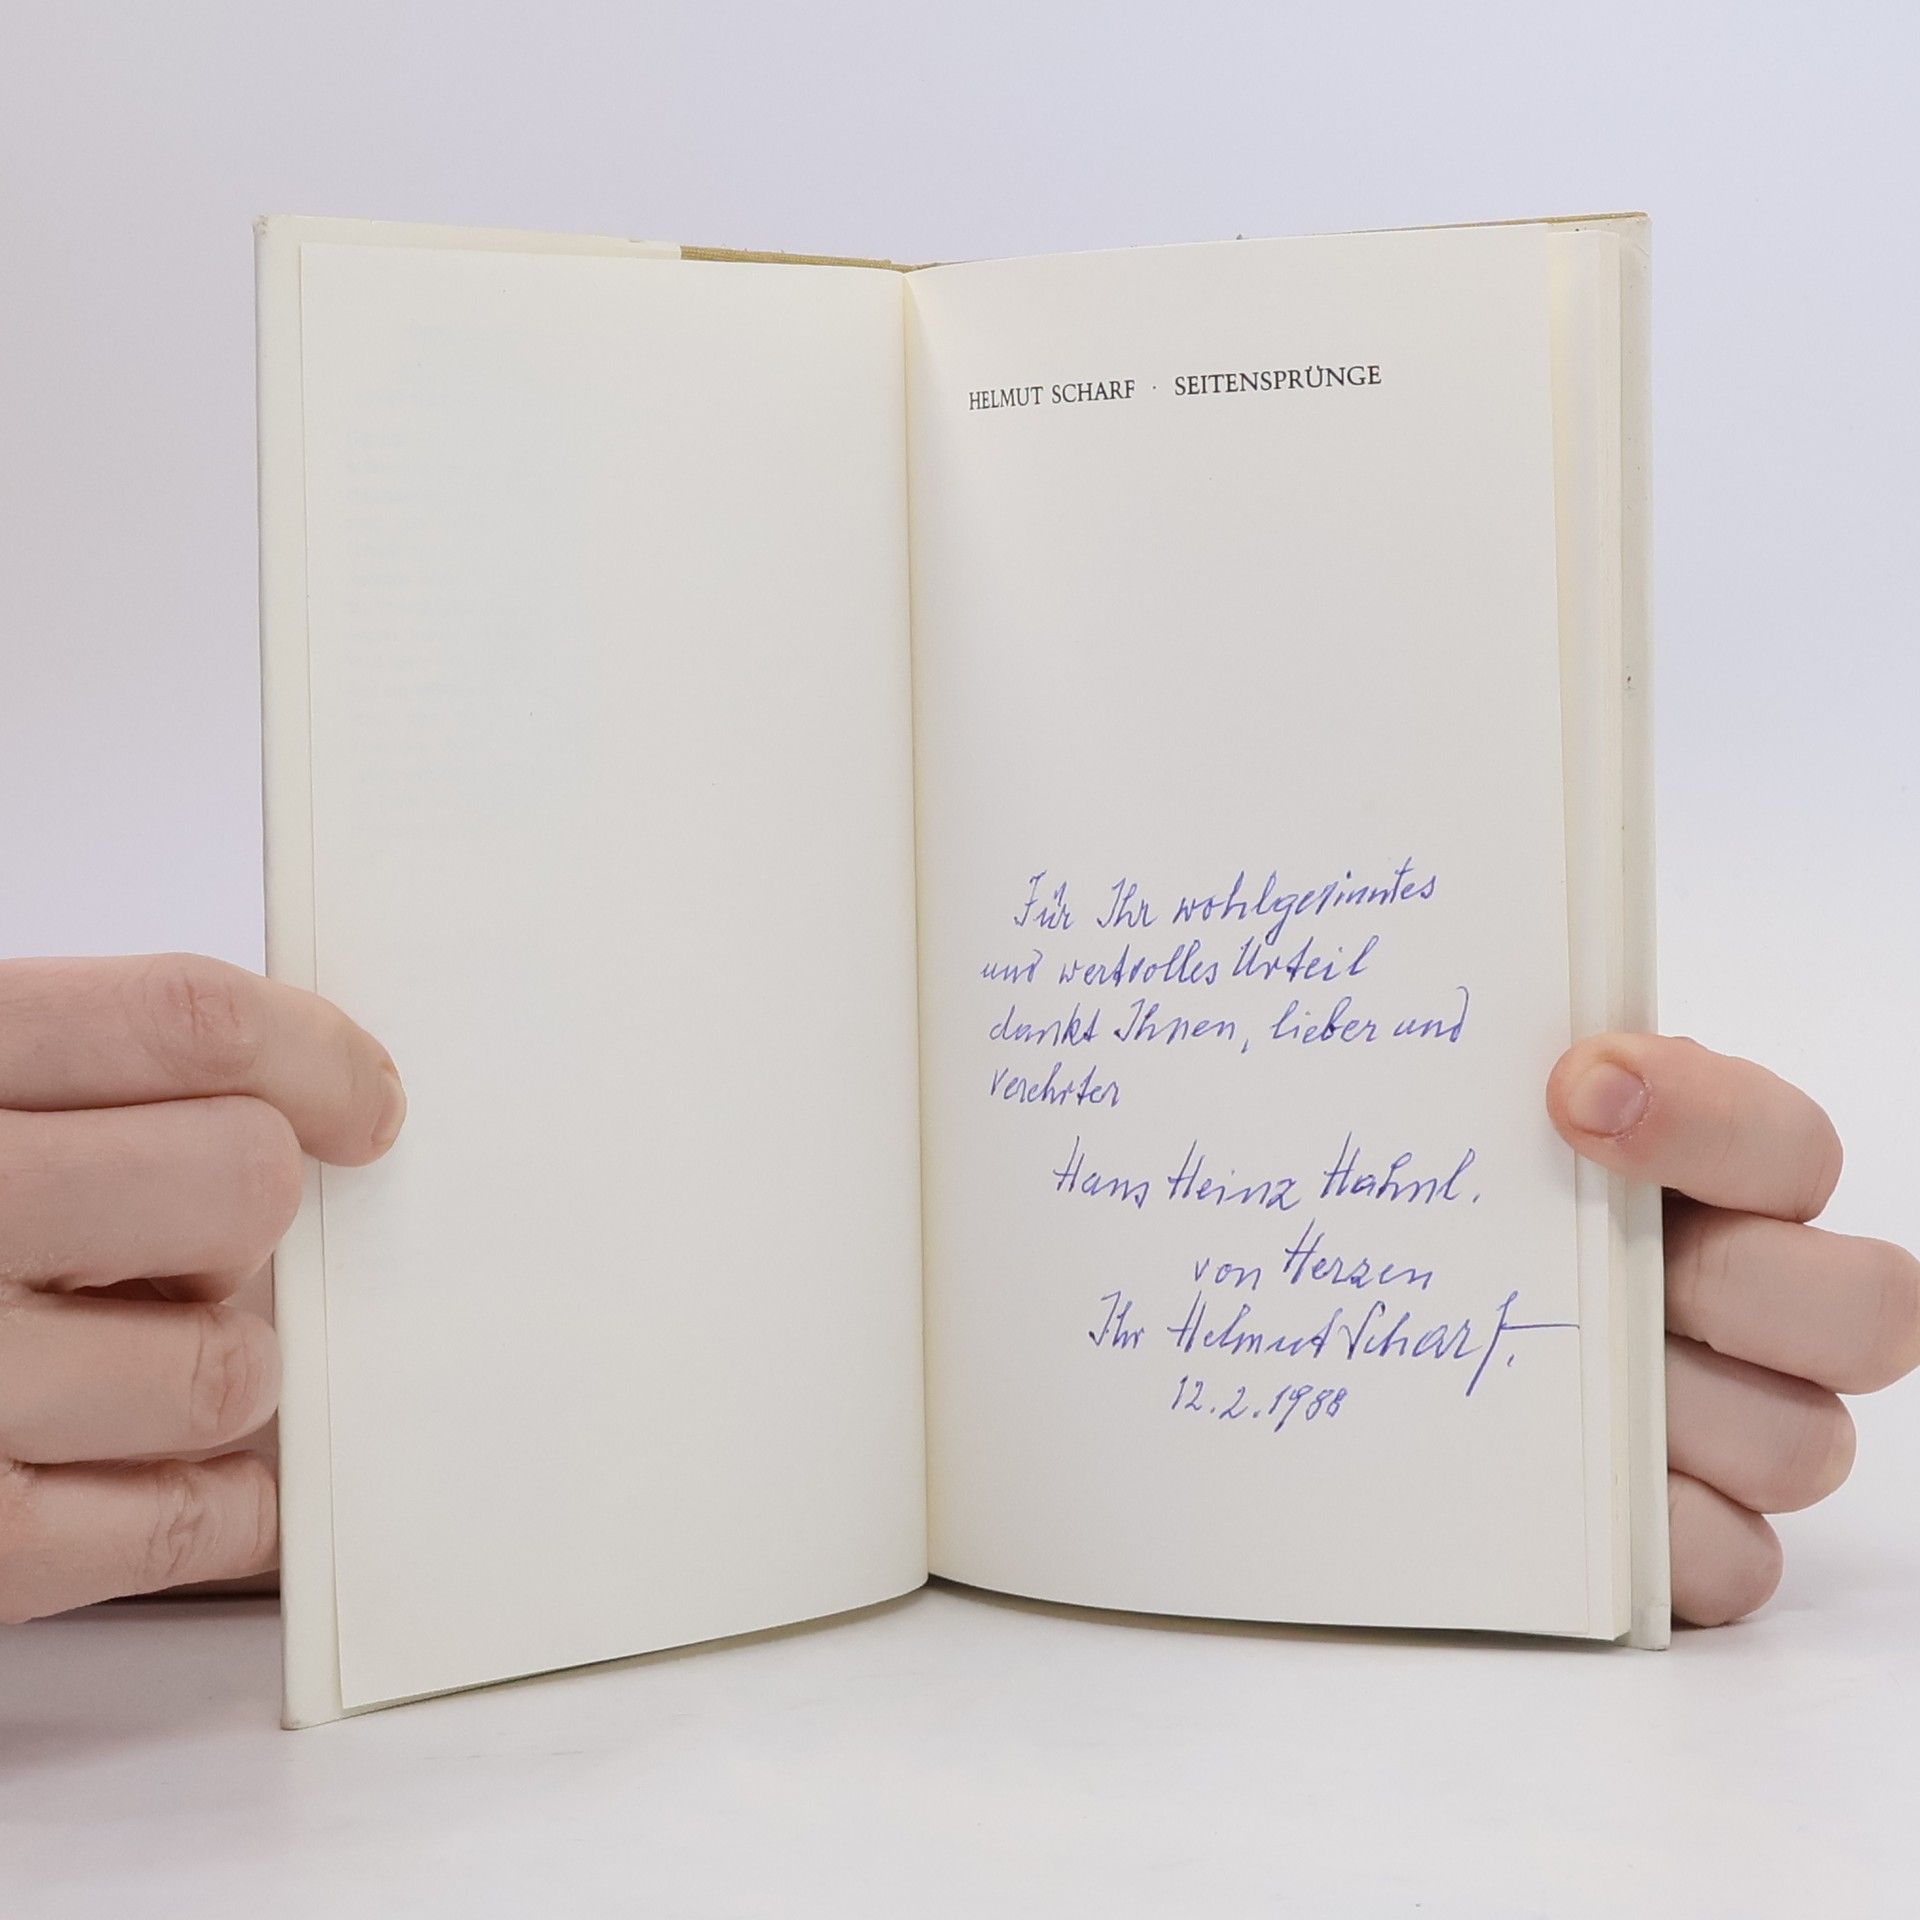 HELMUT SCHARF · SEITENSPRÜNGE
Für Ihr wohlgesinntes
und wertvolles Urteil
dankt Ihnen, lieber und
verehrter
Hans Heinz Hahnl.
von Herzen
Ihr Helmut Scharf.
12.2.1988